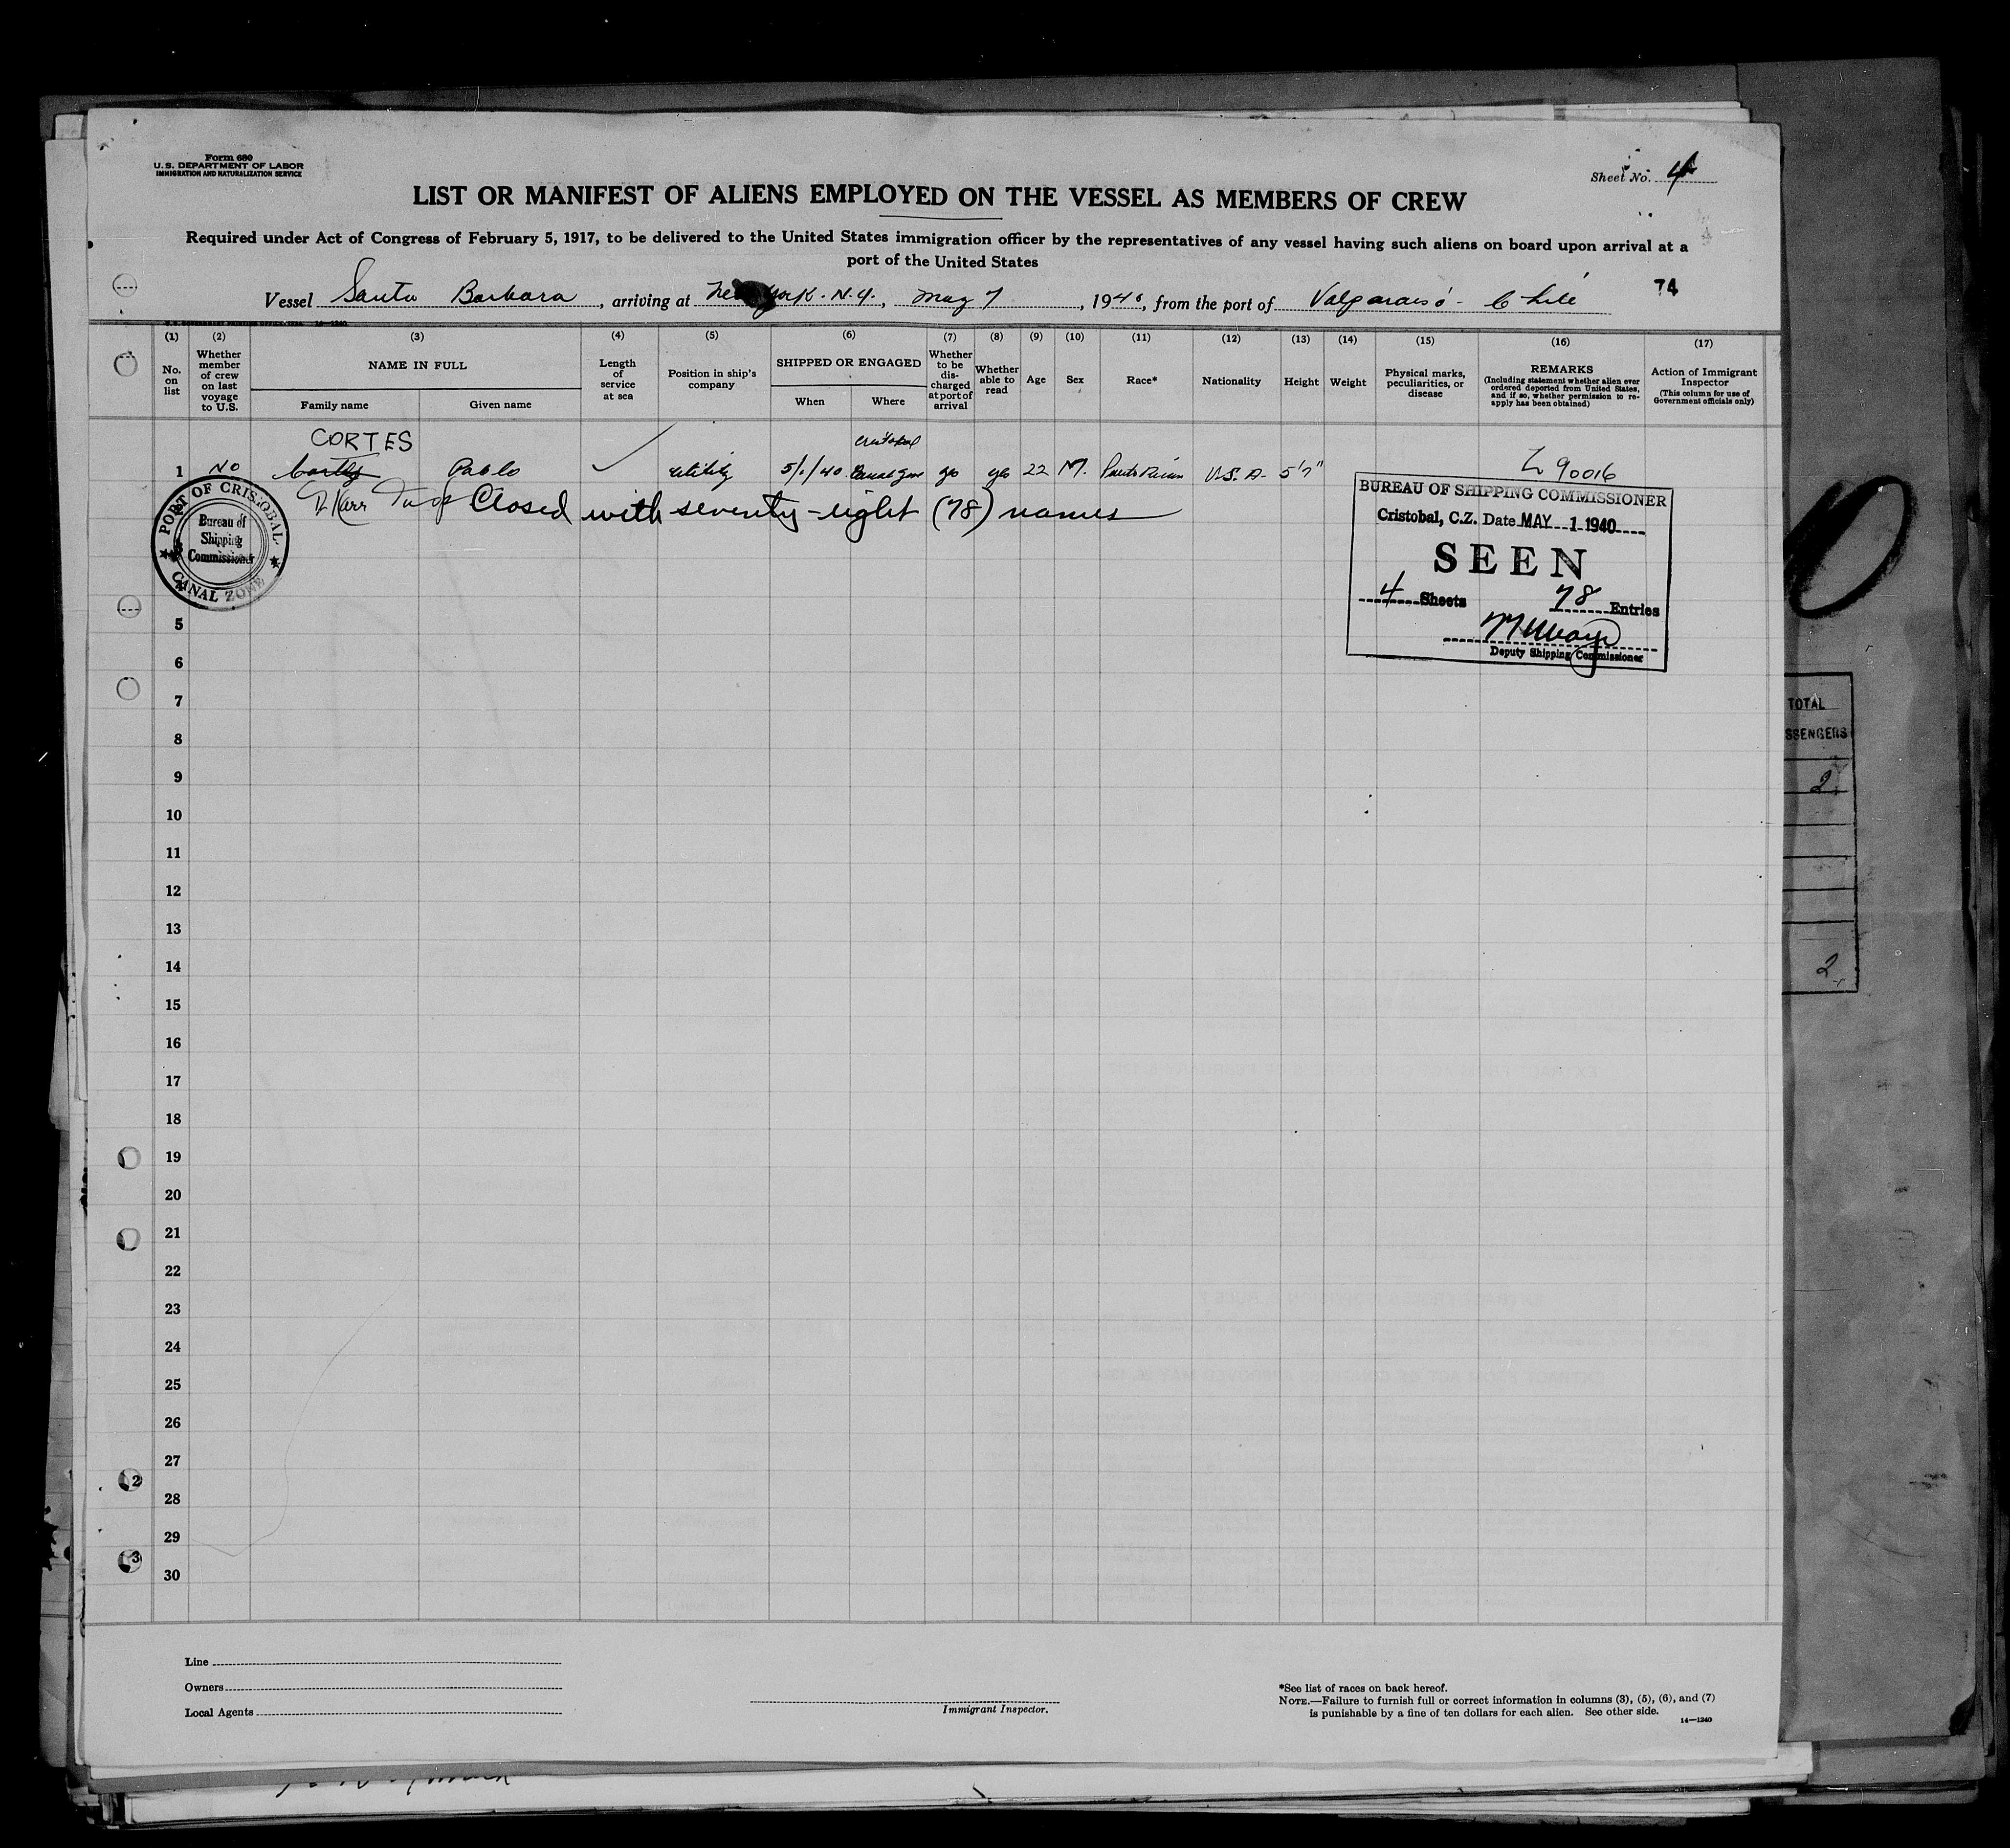 Form 680
U. S. DEPARTMENT OF LABOR
IMMIGRATION AND NATURALIZATION SERVICE
Sheet No. 4
LIST OR MANIFEST OF ALIENS EMPLOYED ON THE VESSEL AS MEMBERS OF CREW
Required under Act of Congress of February 5, 1917, to be delivered to the United States immigration officer by the representatives of any vessel having such aliens on board upon arrival at a
port of the United States
74
Vessel Santa Barbara, arriving at New York. N.Y., May 7, 1940, from the port of Valparaiso - Chile
(1) (2) (3) (4) (5) (6) (7) (8) (9) (10) (11) (12) (13) (14) (15) (16) (17)
No. on list
Whether member of crew on last voyage to U.S.
NAME IN FULL
Family name
Given name
Length of service at sea
Position in ship's company
SHIPPED OR ENGAGED
When
Where
Whether to be discharged at port of arrival
Whether able to read
Age
Sex
Race*
Nationality
Height
Weight
Physical marks, peculiarities, or disease
REMARKS
(Including statement whether alien ever ordered deported from United States, and if so, whether permission to re-apply has been obtained)
Action of Immigrant Inspector
(This column for use of Government officials only)
CORTES Cristobal
1 No Pablo utility 5/1/40 yes yes 22 M. Puerto Rican U.S.A. 5'7" Z 90016
Closed with seventy-eight (78) names
PORT OF CRISTOBAL
Bureau of
Shipping
Commissioner
CANAL ZONE
BUREAU OF SHIPPING COMMISSIONER
Cristobal, C.Z. Date MAY 1 1940
SEEN
4 Sheets 78 Entries
Deputy Shipping Commissioner
5
6
7
8
9
10
11
12
13
14
15
16
17
18
19
20
21
22
23
24
25
26
27
28
29
30
TOTAL
SSENGERS
2
2
2
3
Line
Owners
Local Agents
Immigrant Inspector.
*See list of races on back hereof.
NOTE.—Failure to furnish full or correct information in columns (3), (5), (6), and (7)
is punishable by a fine of ten dollars for each alien. See other side.
14—1240